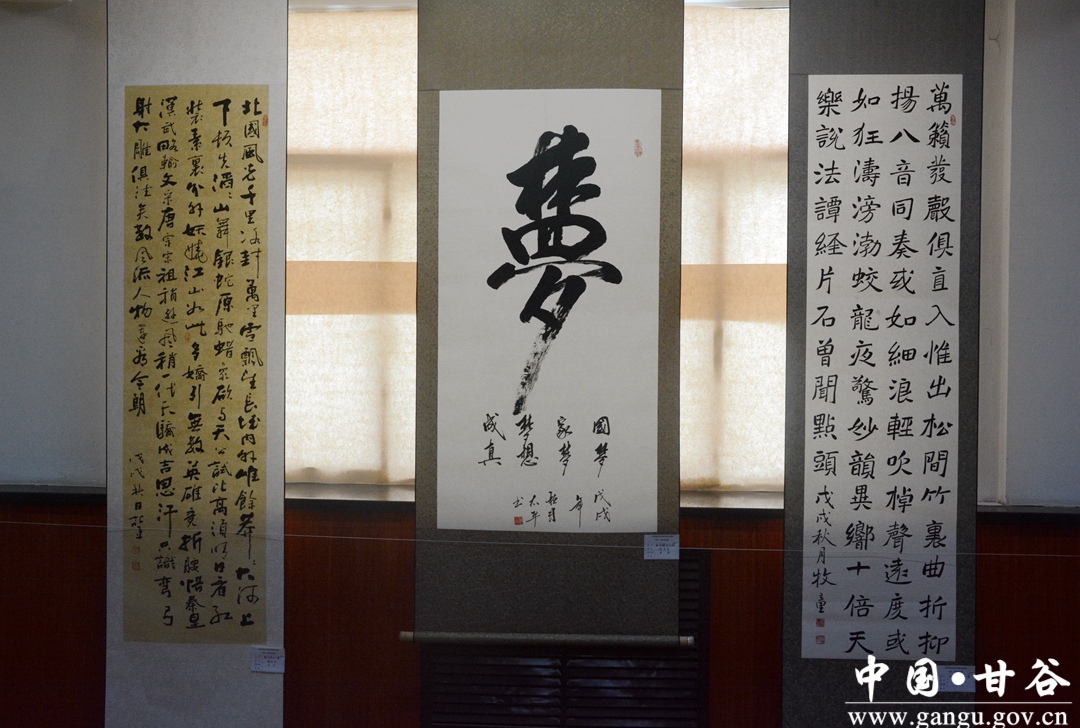 北國風光千里冰封萬里雪飄望長城內外惟餘莽莽大河上
下頓失滔滔山舞銀蛇原馳蠟象欲与天公試比高須晴日看紅
裝素裹分外妖嬈江山如此多嬌引無數英雄競折腰惜秦皇
漢武略輸文采唐宗宋祖稍遜風稍一代天驕成吉思汗只識彎弓
射大雕俱往矣數風流人物還看今朝
戊戌秋日
夢
國夢
家夢
夢想
成真
戊戌
年
太平
书
萬籟發聲俱直入惟出松間竹裏曲折抑
揚八音同奏或如細浪輕吹棹聲遠度或
如狂濤滂渤蛟龍夜驚妙韻異響十倍天
樂說法譚経片石曾聞點頭戊戌秋月牧童
中国·甘谷
www.gangu.gov.cn